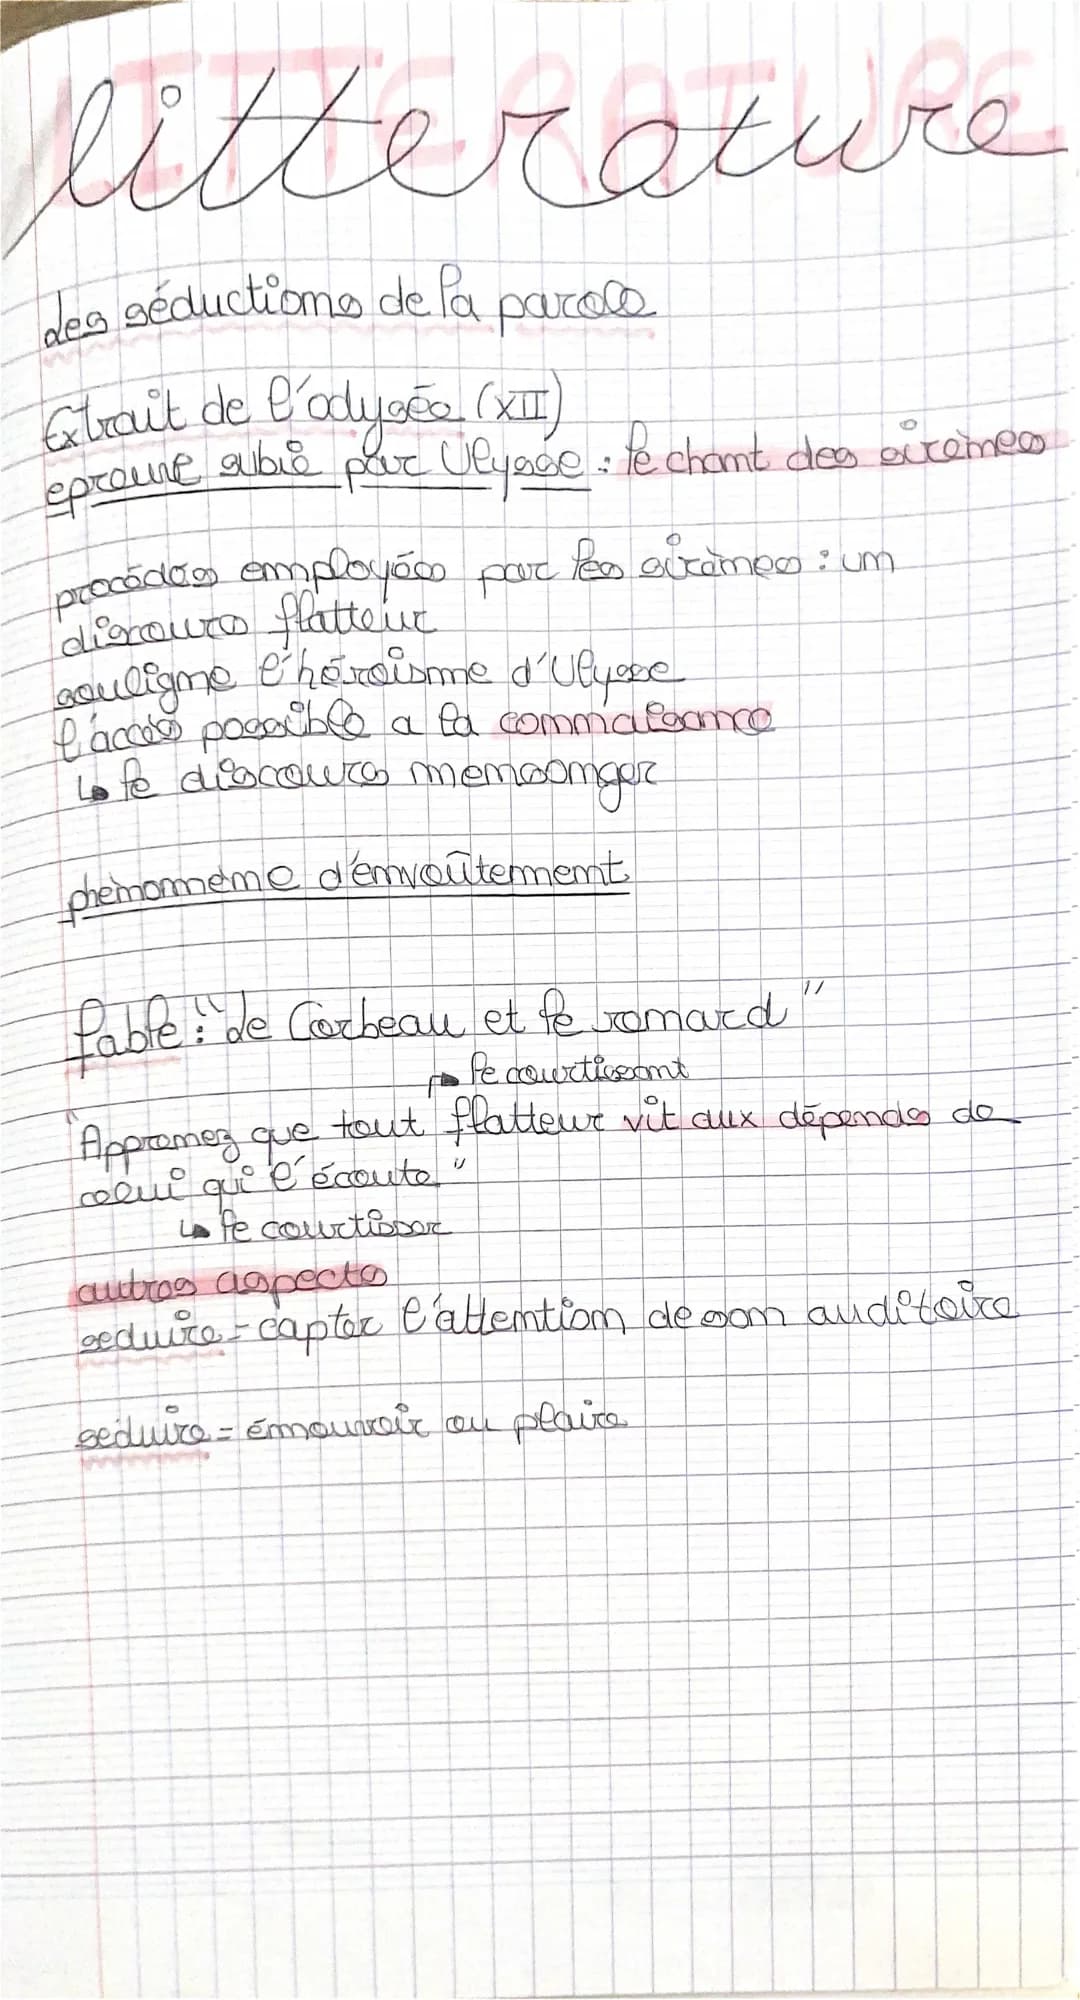 LITTERATURE
litterature
des séductions de la parole
Extrait de l'odyssée (XII)
eprouve subie par Ulysse : le chant des sirènes
procédés employées par les sirènes : un
discours flatteur
souligne l'héroïsme d'Ulysse
l'accès possible a la connaissance
↳ le discours mensonger
phénonmène d'envoûtement
fable : "le Corbeau et le renard"
↱ le courtisant
"Apprenez que tout flatteur vit aux dépends de
celui qui l'écoute"
↳ le courtisser
autres aspects
seduire = capter l'attention de son auditoire
séduire = émouvoir ou plaire